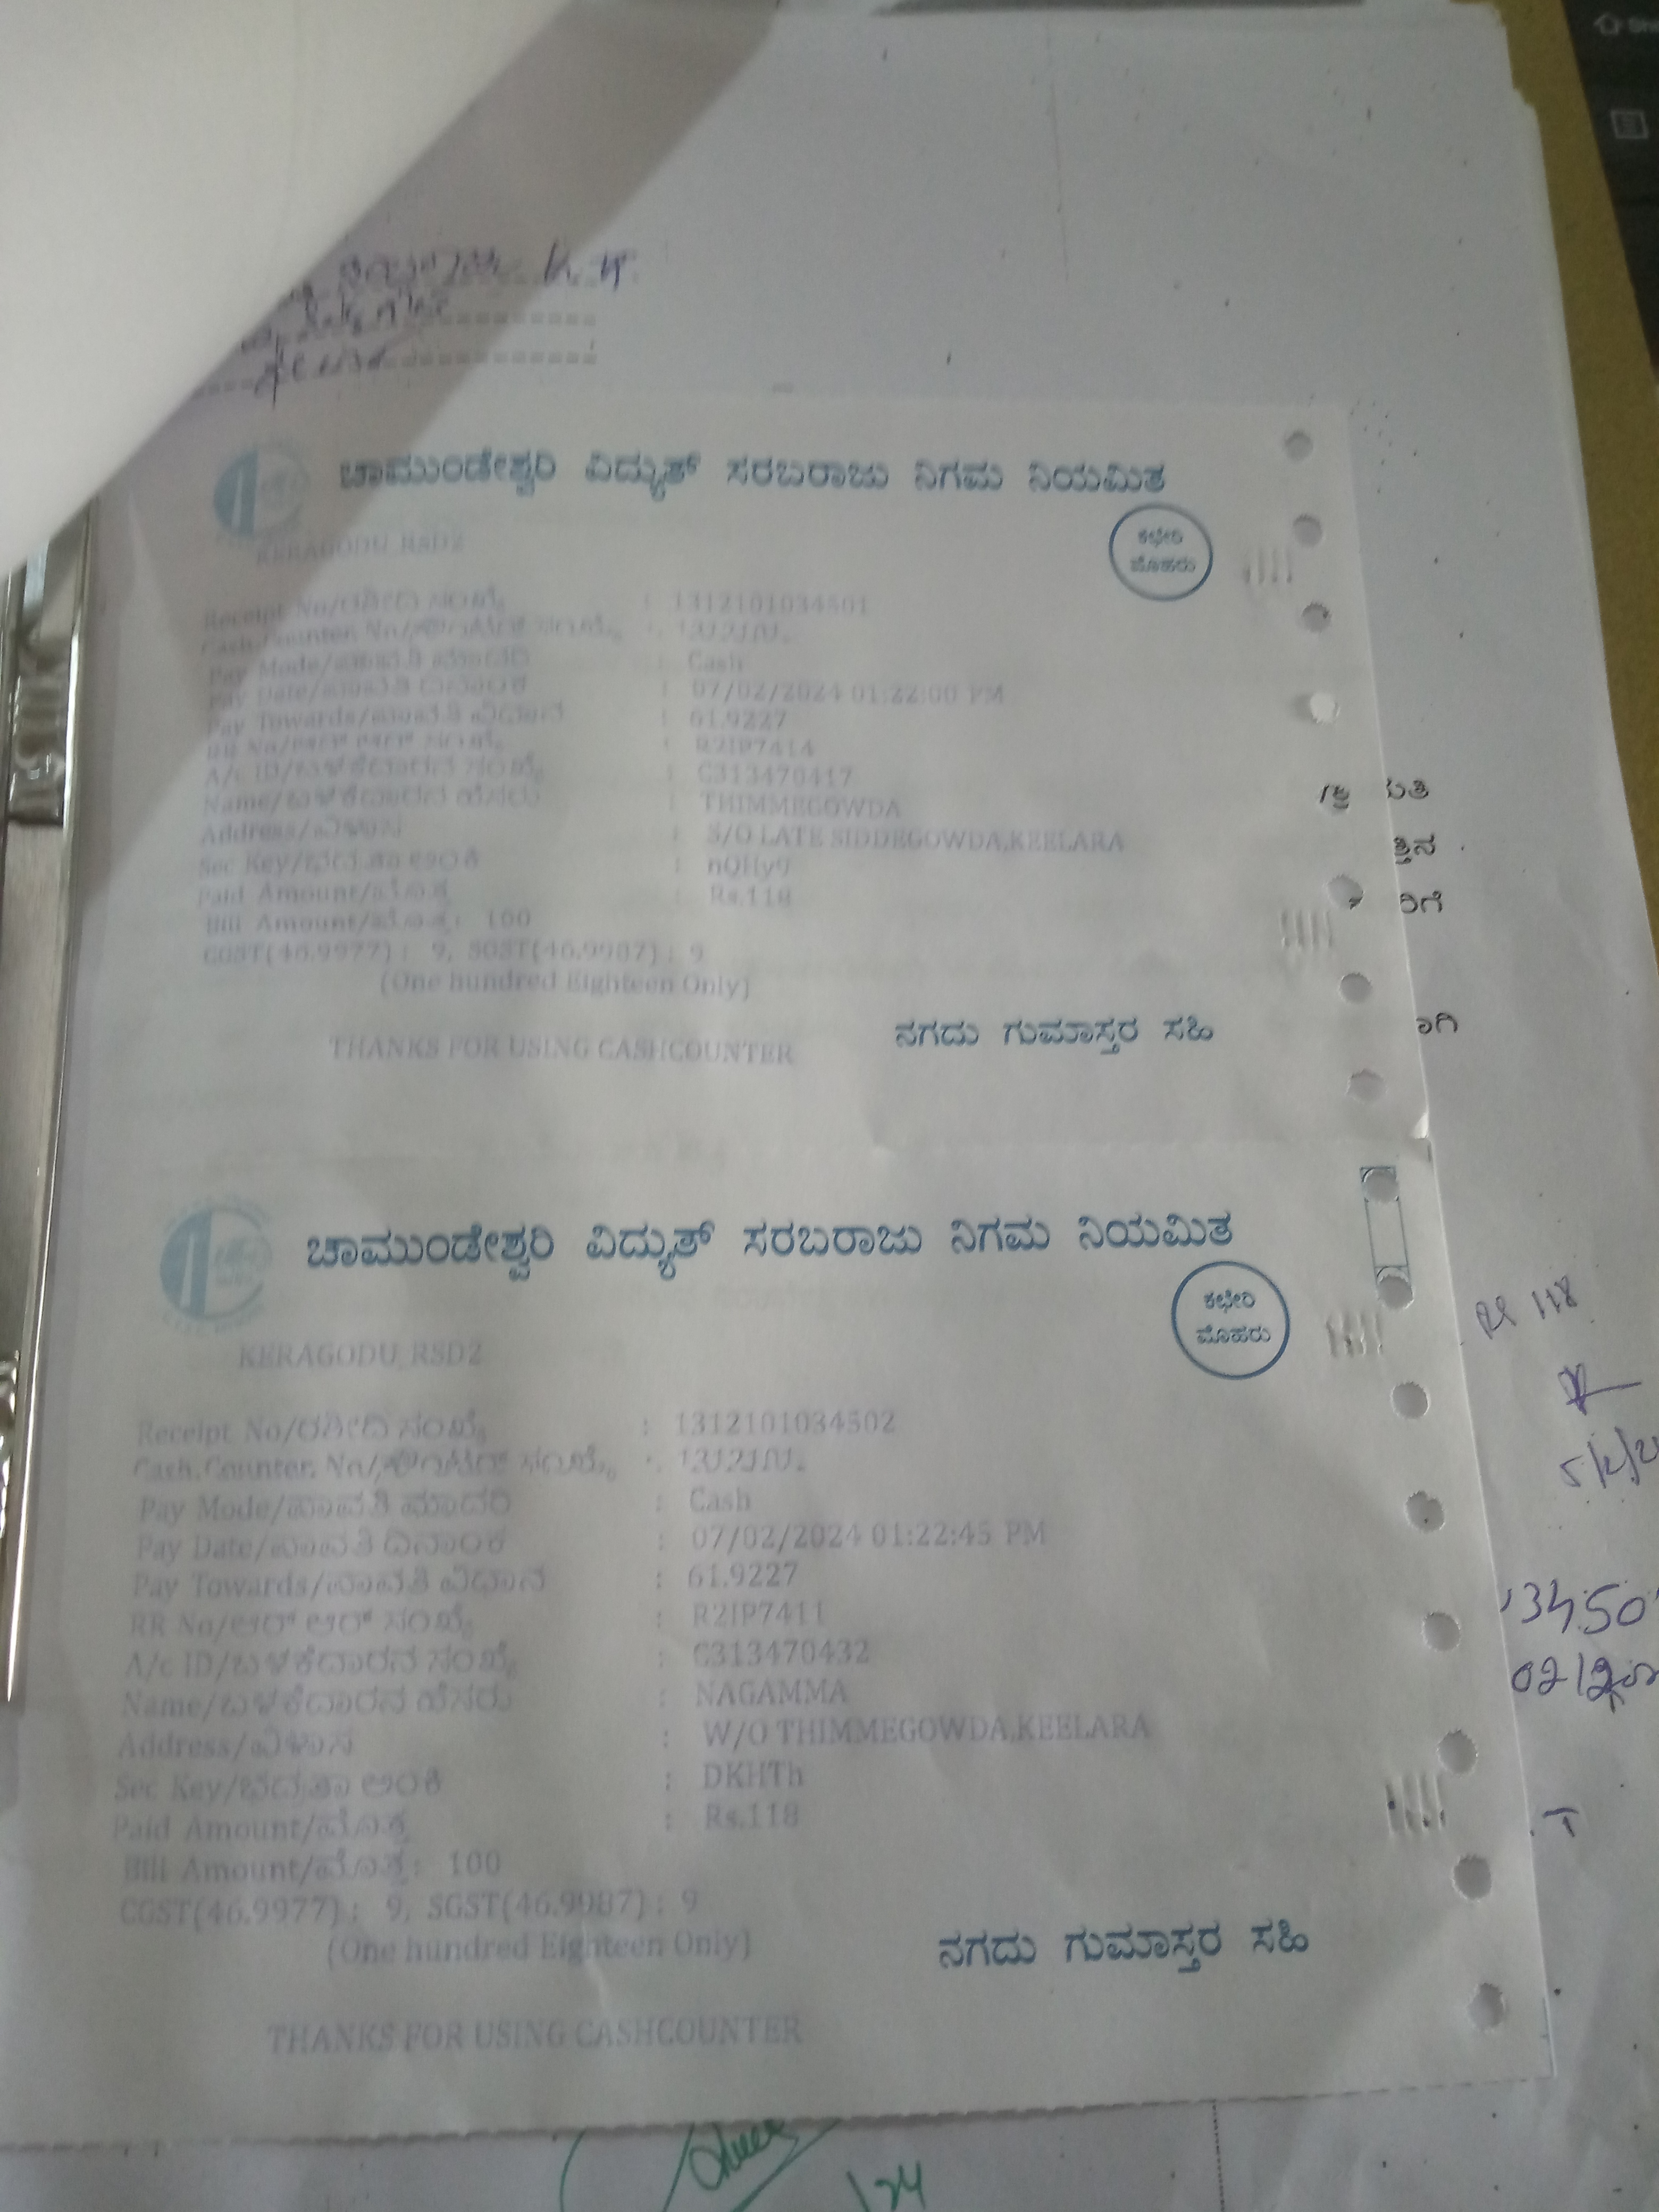 K.T.
ಚಾಮುಂಡೇಶ್ವರಿ ವಿದ್ಯುತ್ ಸರಬರಾಜು ನಿಗಮ ನಿಯಮಿತ
ಕಛೇರಿ
ಮೊಹರು
KERAGODU_RSD2
Receipt No/ರಶೀದಿ ಸಂಖ್ಯೆ : 1312101034501
Cash Counter No/ ಸಂಖ್ಯೆ :
Pay Mode/ಪಾವತಿ ಮಾದರಿ : Cash
Pay Date/ಪಾವತಿ ದಿನಾಂಕ : 07/02/2024 01:22:00 PM
Pay Towards/ಪಾವತಿ ವಿಧಾನ : 61.9227
RR No/ಆರ್ ಆರ್ ಸಂಖ್ಯೆ : R2IP7414
A/c ID/ಬಳಕೆದಾರನ ಸಂಖ್ಯೆ : C313470417
Name/ಬಳಕೆದಾರನ ಹೆಸರು : THIMMEGOWDA
Address/ವಿಳಾಸ : S/O LATE SIDDEGOWDA,KEELARA
Sec Key/ಭದ್ರತಾ ಅಂಕಿ : nQHy9
Paid Amount/ಮೊತ್ತ : Rs.118
Bill Amount/ಮೊತ್ತ : 100
CGST(46.9977) : 9, SGST(46.9987) : 9
(One hundred Eighteen Only)
ನಗದು ಗುಮಾಸ್ತರ ಸಹಿ
THANKS FOR USING CASHCOUNTER
ತ್ತಿನ
ರಿಗೆ
ಾಗಿ
ಚಾಮುಂಡೇಶ್ವರಿ ವಿದ್ಯುತ್ ಸರಬರಾಜು ನಿಗಮ ನಿಯಮಿತ
ಕಛೇರಿ
ಮೊಹರು
KERAGODU_RSD2
Receipt No/ರಶೀದಿ ಸಂಖ್ಯೆ : 1312101034502
Cash Counter No/ ಸಂಖ್ಯೆ :
Pay Mode/ಪಾವತಿ ಮಾದರಿ : Cash
Pay Date/ಪಾವತಿ ದಿನಾಂಕ : 07/02/2024 01:22:45 PM
Pay Towards/ಪಾವತಿ ವಿಧಾನ : 61.9227
RR No/ಆರ್ ಆರ್ ಸಂಖ್ಯೆ : R2IP7411
A/c ID/ಬಳಕೆದಾರನ ಸಂಖ್ಯೆ : C313470432
Name/ಬಳಕೆದಾರನ ಹೆಸರು : NAGAMMA
Address/ವಿಳಾಸ : W/O THIMMEGOWDA,KEELARA
Sec Key/ಭದ್ರತಾ ಅಂಕಿ : DKHTh
Paid Amount/ಮೊತ್ತ : Rs.118
Bill Amount/ಮೊತ್ತ : 100
CGST(46.9977) : 9, SGST(46.9987) : 9
(One hundred Eighteen Only)
ನಗದು ಗುಮಾಸ್ತರ ಸಹಿ
THANKS FOR USING CASHCOUNTER
118
3450
/24